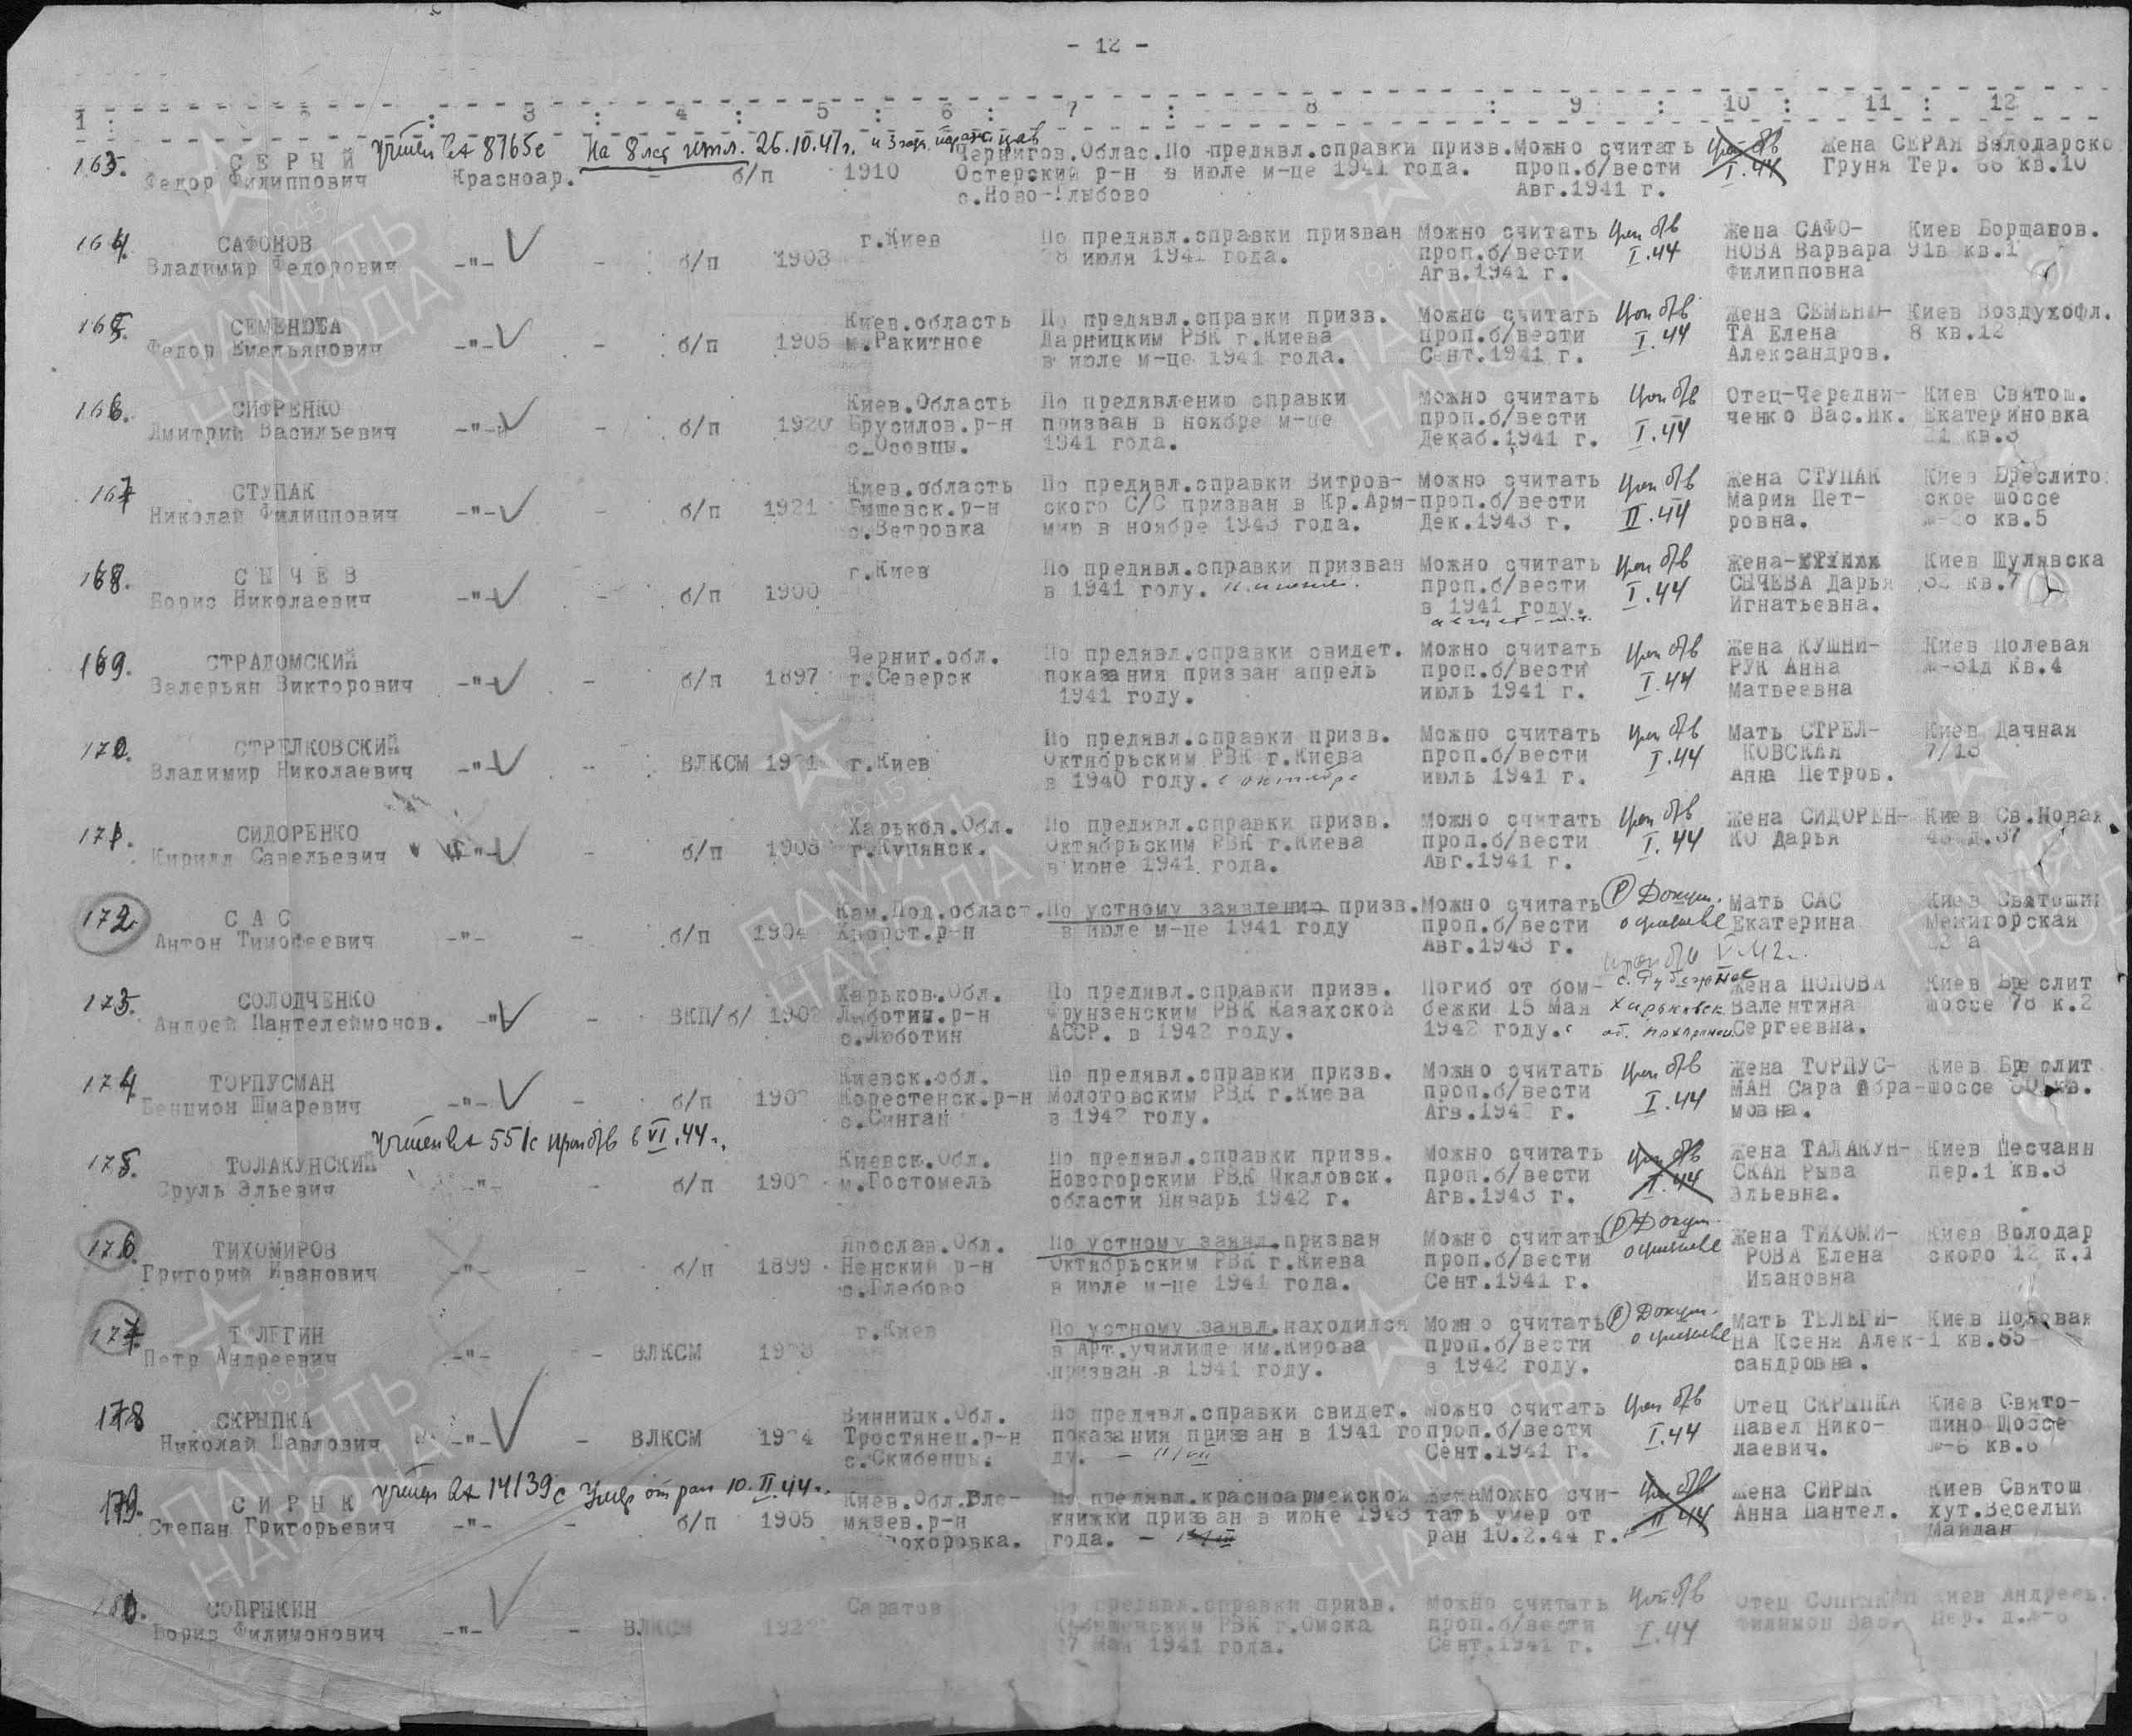 - 12 -
1 : 2 : 3 : 4 : 5 : 6 : 7 : 8 : 9 : 10 : 11 : 12
163. СЕРЫЙ На 8 26.10.41г. Чернигов.Облас. По предявл.справки призв. Можно считать Жена СЕРАЯ
Федор Филиппович Красноар. - б/п 1910 Остерский р-н в июле м-це 1941 года. проп.б/вести I.44 Груня Тер. 66 кв.10
Авг.1941 г.
164. САФОНОВ г.Киев По предявл.справки призван Можно считать проп б/в Жена САФО- Киев
Владимир Федорович -"- - б/п 1903 июля 1941 года. проп.б/вести I.44 НОВА Варвара 91в кв.1
Агв.1941 г. Филипповна
165. СЕМЕНЮТА Киев.область По предявл.справки призв. Можно считать проп б/в Жена СЕМЕНЮ- Киев Воздухофл.
Федор Емельянович -"- - б/п 1905 м.Ракитное Дарницким РВК г.Киева проп.б/вести I.44 ТА Елена 8 кв.12
в июле м-це 1941 года. Сент.1941 г. Александров.
166. СИФРЕНКО Киев.Область По предявлению справки Можно считать проп б/в Отец-Чередни- Киев Святош.
Дмитрий Васильевич -"- - б/п 1920 Брусилов.р-н призван в ноябре м-це проп.б/вести I.44 ченко Вас.Ик. Екатериновка
с.Осовцы. 1941 года. Декаб.1941 г.
167 СТУПАК Киев.область По предявл.справки Витров- Можно считать проп б/в Жена СТУПАК Киев
Николай Филиппович -"- - б/п 1921 Бышевск.р-н ского С/С призван в Кр.Арм- проп.б/вести II.44 Мария Пет- ское шоссе
с.Ветровка ию в ноябре 1943 года. Дек.1943 г. ровна. кв.5
168. СЫЧЕВ г.Киев По предявл.справки призван Можно считать проп б/в Жена- Киев Шулявска
Борис Николаевич -"- - б/п 1900 в 1941 году. проп.б/вести I.44 СЫЧЕВА Дарья 32 кв.7
в 1941 году. Игнатьевна.
169. СТРАДОМСКИЙ Черниг.обл. По предявл.справки свидет. Можно считать проп б/в Жена КУШНИ- Киев Полевая
Валерьян Викторович -"- - б/п 1897 г.Северск показания призван апрель проп.б/вести I.44 РУК Анна кв.4
1941 году. июль 1941 г. Матвеевна
170. СТРЕЛКОВСКИЙ По предявл.справки призв. Можно считать проп б/в Мать СТРЕЛ- Киев Дачная
Владимир Николаевич -"- - ВЛКСМ 1921 г.Киев Октябрьским РВК г.Киева проп.б/вести I.44 КОВСКАЯ 7/13
в 1940 году. с октября июль 1941 г. Анна Петров.
171. СИДОРЕНКО Харьков.Обл. По предявл.справки призв. Можно считать проп б/в Жена СИДОРЕН- Киев Св.Новая
Кирилл Савельевич -"- - б/п 1908 г.Купянск. Октябрьским РВК г.Киева проп.б/вести I.44 КО Дарья
в июне 1941 года. Авг.1941 г.
172. САС Кам.Под.област. По устному заявлению призв. Можно считать (Р) Докум. Мать САС Киев Святошин
Антон Тимофеевич -"- - б/п 1904 р-н в июле м-це 1941 году проп.б/вести о призыве Екатерина Межигорская
Авг.1943 г.
173. СОЛОДЧЕНКО Харьков.Обл. По предявл.справки призв. Погиб от бом- Жена ПОПОВА Киев Бреслит
Андрей Пантелеймонов. -"- - ВКП/б/ Люботин.р-н Фрунзенским РВК Казахской бежки 15 Мая Харьковск. Валентина шоссе 78 к.2
с.Люботин АССР. в 1942 году. 1942 году. Сергеевна.
174. ТОРПУСМАН Киевск.обл. По предявл.справки призв. Можно считать проп б/в Жена ТОРПУС- Киев Бреслит
Бенцион Шмаревич -"- - б/п Корестенск.р-н Молотовским РВК г.Киева проп.б/вести I.44 МАН Сара Абра- шоссе кв.
с.Сингаи в 1942 году. Агв.1942 г. мовна.
175. ТОЛАКУНСКИЙ учтен проп б/в в VI.44г. Киевск.Обл. По предявл.справки призв. Можно считать проп б/в Жена ТАЛАКУН- Киев Песчанн
Сруль Эльевич -"- - б/п м.Гостомель Новогорским РВК Чкаловск. проп.б/вести II.44 СКАЯ Рыва пер.1 кв.3
области Январь 1942 г. Агв.1943 г. Эльевна.
176. ТИХОМИРОВ Ярослав.Обл. По устному заявл.призван Можно считать (Р) Докум. Жена ТИХОМИ- Киев Володар
Григорий Иванович -"- - б/п 1899 Ненский р-н Октябрьским РВК г.Киева проп.б/вести о призыве РОВА Елена ского 12 к.1
с.Глебово в июле м-це 1941 года. Сент.1941 г. Ивановна
177. ТЕЛЕГИН г.Киев По устному заявл.находился Можно считать (Р) Докум. Мать ТЕЛЕГИ- Киев
Петр Андреевич -"- - ВЛКСМ в Арт.училище им.Кирова проп.б/вести о призыве НА Ксеня Алек- 1 кв.65
призван в 1941 году. в 1942 году. сандровна.
178 СКРЫПКА Винницк.Обл. По предявл.справки свидет. Можно считать проп б/в Отец СКРЫПКА Киев Свято-
Николай Павлович -"- - ВЛКСМ 1924 Тростянец.р-н показания призван в 1941 го проп.б/вести I.44 Павел Нико- шино Шоссе
с.Скибенцы. ду. Сент.1941 г. лаевич.
179. СИРЫК учтен 14139с Умер от ран 10.II.44г. Киев.Обл. По предявл.красноармейской Можно счи- проп б/в Жена СИРЫК Киев Святош
Степан Григорьевич -"- - б/п 1905 р-н книжки призван в июне 1943 тать умер от II 44 Анна Пантел. хут.Веселый
года. ран 10.2.44 г. Майдан
180. СОПРЫКИН Саратов По предявл.справки призв. Можно считать проп б/в Отец СОПРЫКИН Киев Андреев.
Борис Филимонович -"- - ВЛКСМ РВК г.Омска проп.б/вести I.44 Филимон Вас. Пер.
Мая 1941 года. Сент.1941 г.
ПАМЯТЬ
НАРОДА
1941-1945